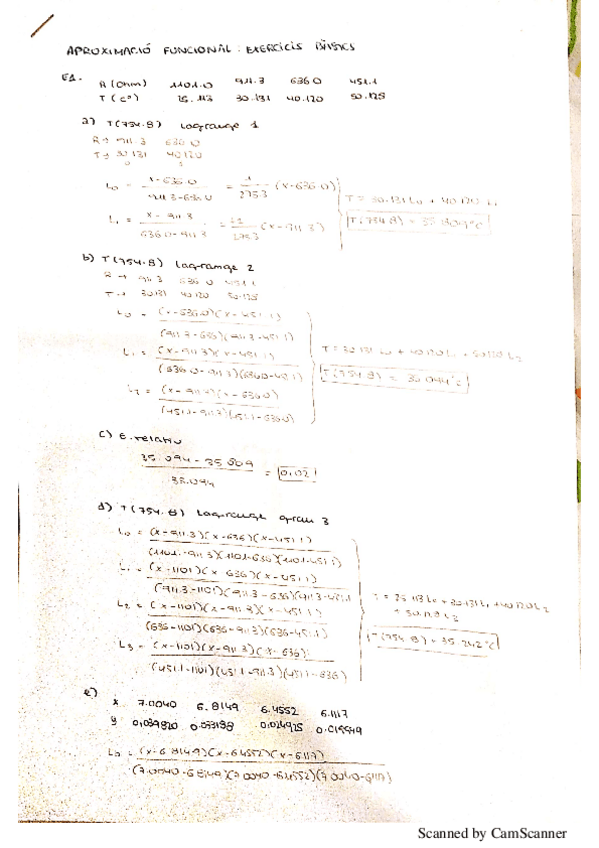 APROXIMACIÓ FUNCIONAL: EXERCICIS BÀSICS
E1. R (Ohm) 1101.0 911.3 636.0 451.1
T (Cº) 25.113 30.131 40.120 50.128
a) T(754.8) Lagrange 1
R → 911.3 636.0
T → 30.131 40.120
0 1
L₀ = x-636.0 / 911.3-636.0 = 1 / 275.3 (x-636.0)
L₁ = x-911.3 / 636.0-911.3 = -1 / 275.3 (x-911.3)
T = 30.131 L₀ + 40.120 L₁
b) T(754.8) Lagrange 2
R → 911.3 636.0 451.1
T → 30.131 40.120 50.128
L₀ = (x-636.0)(x-451.1) / (911.3-636)(911.3-451.1)
L₁ = (x-911.3)(x-451.1) / (636.0-911.3)(636.0-451.1)
L₂ = (x-911.3)(x-636.0) / (451.1-911.3)(451.1-636.0)
T = 30.131 L₀ + 40.120 L₁ + 50.128 L₂
c) E. relatiu
= 0.021
35.094
d) T(754.8) Lagrange grau 3
L₀ = (x-911.3)(x-636)(x-451.1) / (1101-911.3)(1101-636)(1101-451.1)
L₁ = (x-1101)(x-636)(x-451.1) / (911.3-1101)(911.3-636)(911.3-451.1)
L₂ = (x-1101)(x-911.3)(x-451.1) / (636-1101)(636-911.3)(636-451.1)
L₃ = (x-1101)(x-911.3)(x-636) / (451.1-1101)(451.1-911.3)(451.1-636)
T(754.8) = 35.242ºC
e)
x 7.0040 6.8149 6.4552 6.1117
y 0.039820 0.033188 0.024925 0.019949
L₀ = (x-6.8149)(x-6.4552)(x-6.1117) / (7.0040-6.8149)(7.0040-6.4552)(7.0040-6.1117)
Scanned by CamScanner